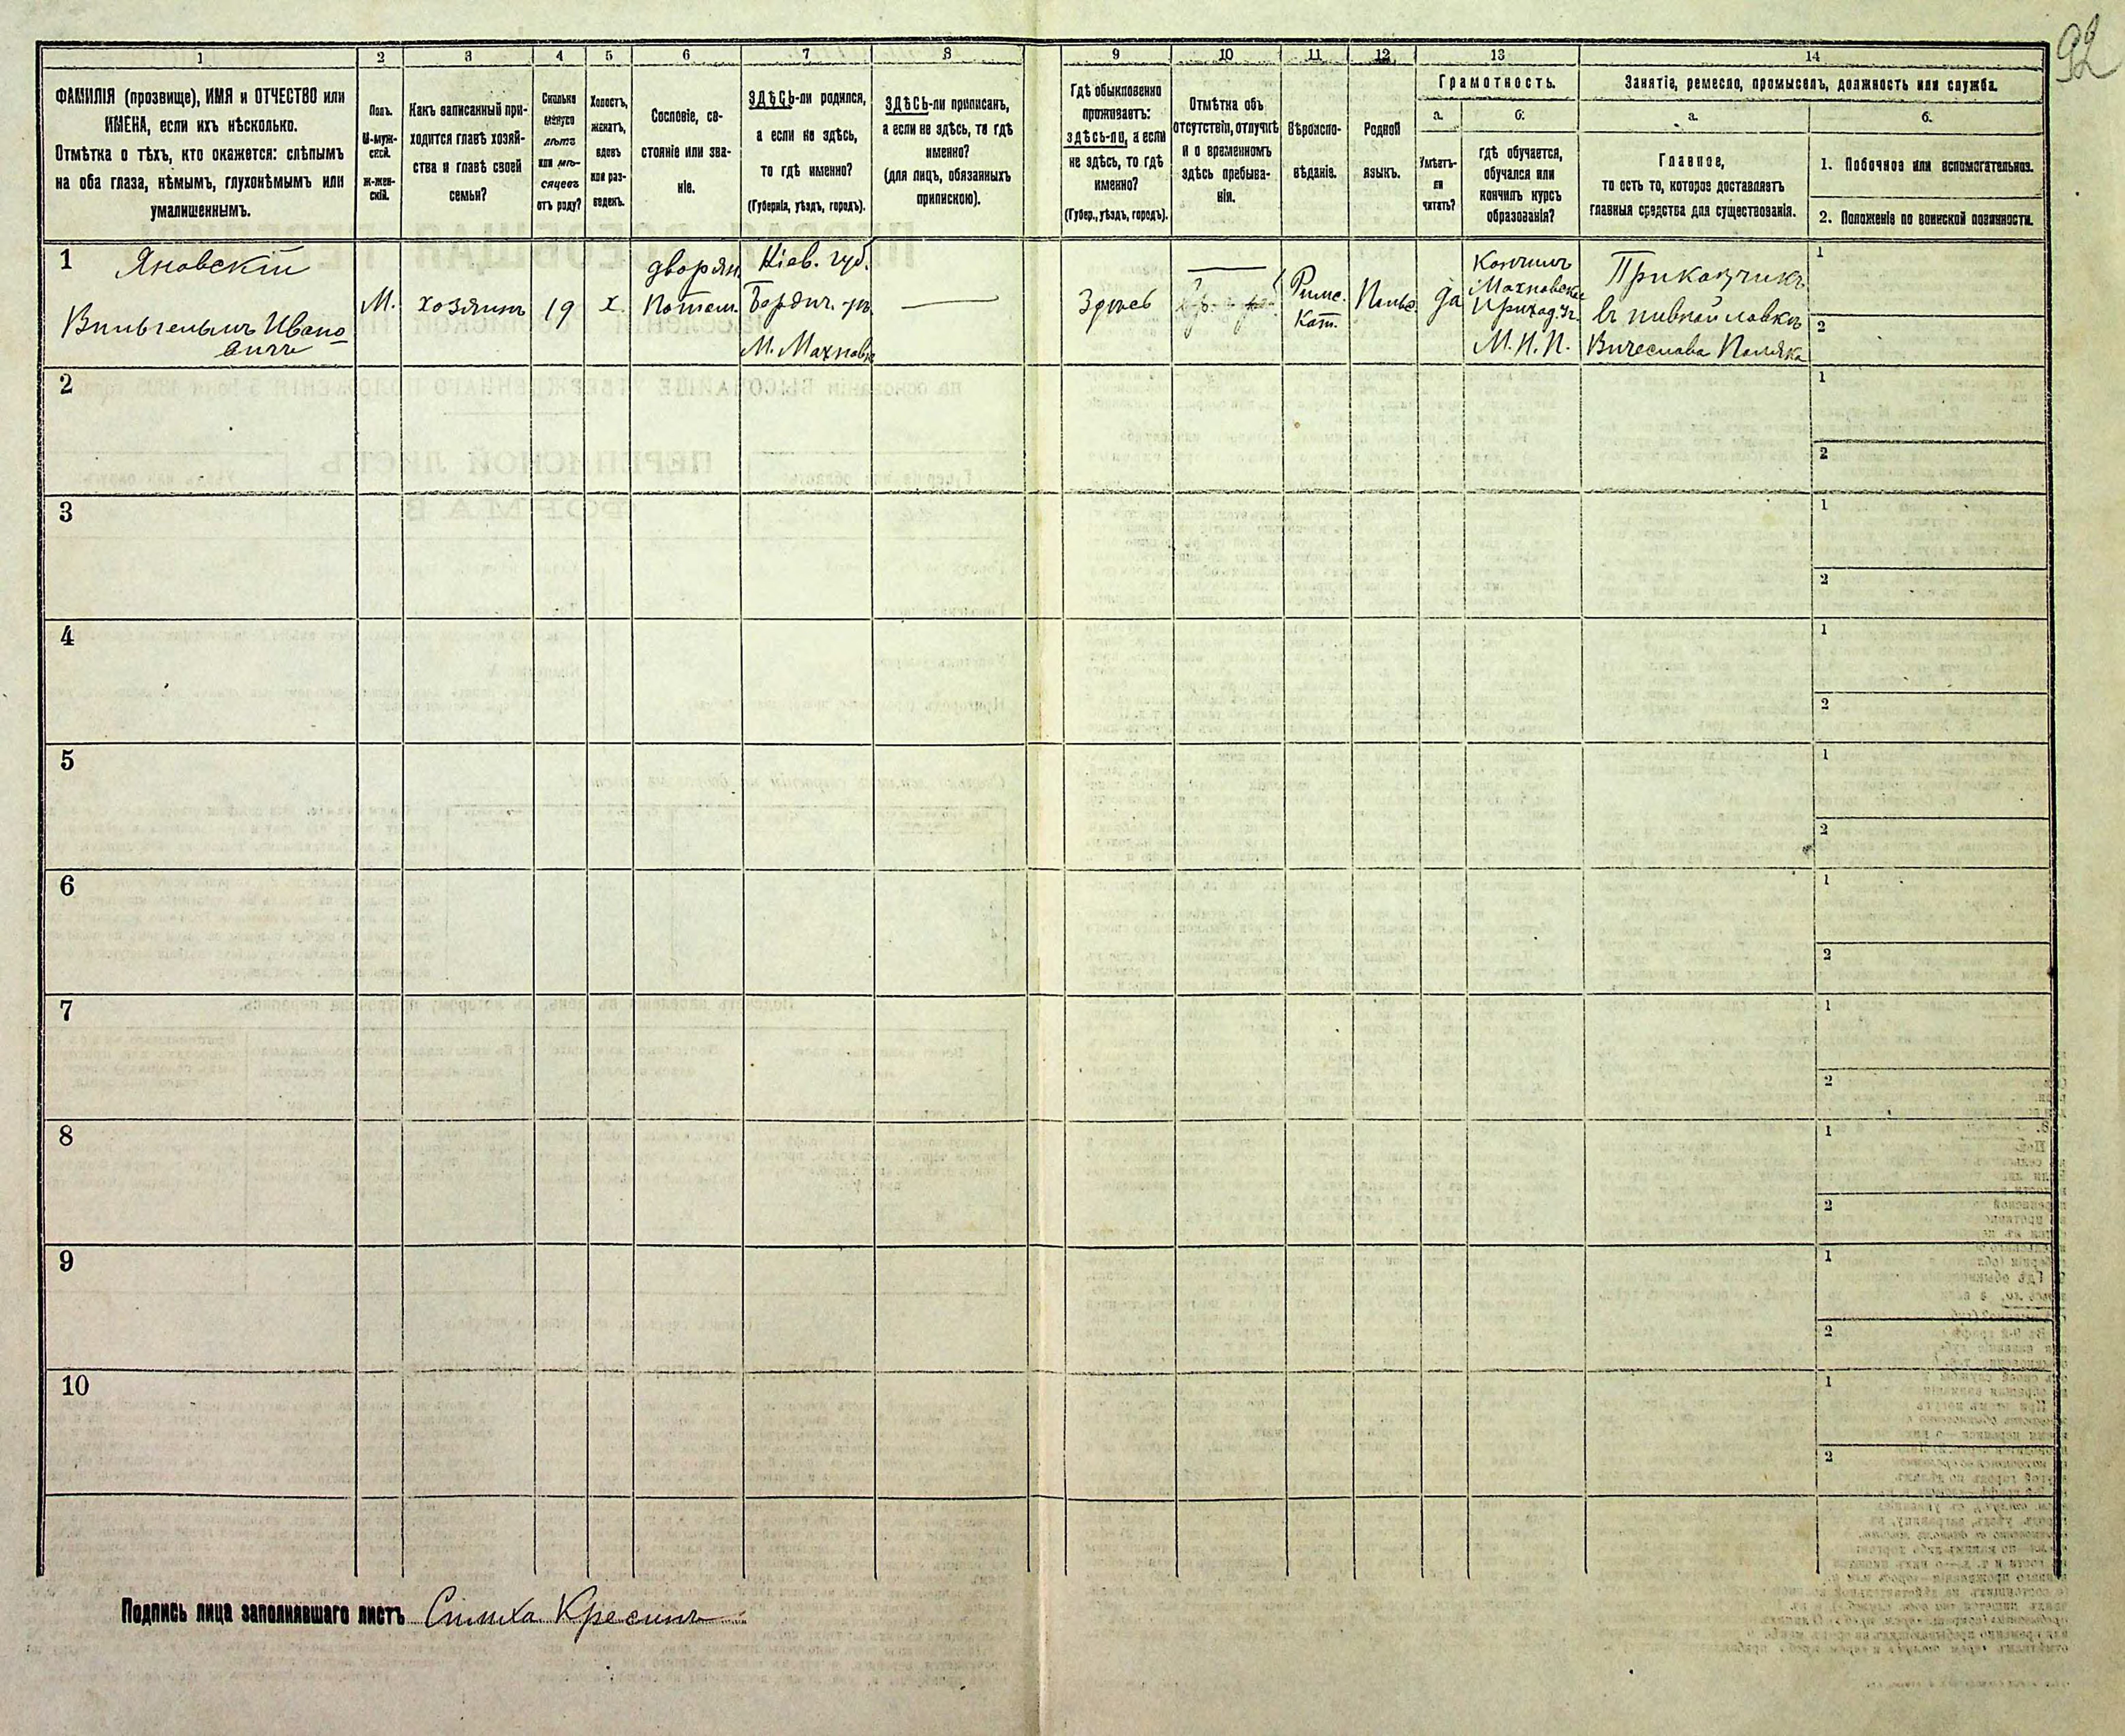 92
1 2 3 4 5 6 7 8 9 10 11 12 13 14
ФАМИЛІЯ (прозвище), ИМЯ и ОТЧЕСТВО или
ИМЕНА, если ихъ нѣсколько.
Отмѣтка о тѣхъ, кто окажется: слѣпымъ
на оба глаза, нѣмымъ, глухонѣмымъ или
умалишеннымъ.
Полъ.
М-муж-
ской.
Ж-жен-
скій.
Какъ записанный при-
ходится главѣ хозяй-
ства и главѣ своей
семьи?
Сколько
минуло
лѣтъ
или мѣ-
сяцевъ
отъ роду?
Холостъ,
женатъ,
вдовъ
или раз-
веденъ.
Сословіе, со-
стояніе или зва-
ніе.
ЗДѢСЬ-ли родился,
а если не здѣсь,
то гдѣ именно?
(Губернія, уѣздъ, городъ).
ЗДѢСЬ-ли приписанъ,
а если не здѣсь, то гдѣ
именно?
(для лицъ, обязанныхъ
припискою).
Гдѣ обыкновенно
проживаетъ:
здѣсь-ли, а если
не здѣсь, то гдѣ
именно?
(Губер., уѣздъ, городъ).
Отмѣтка объ
отсутствіи, отлучкѣ
и о временномъ
здѣсь пребыва-
ніи.
Вѣроиспо-
вѣданіе.
Родной
языкъ.
Грамотность.
а.
Умѣетъ-
ли
читать?
б.
гдѣ обучается,
обучался или
кончилъ курсъ
образованія?
Занятіе, ремесло, промыселъ, должность или служба.
а.
Главное,
то есть то, которое доставляетъ
главныя средства для существованія.
б.
1. Побочное или вспомогательное.
2. Положеніе по воинской повинности.
1
Яновскій
Вильгельмъ Ивано-
вичъ
М.
хозяинъ
19
х.
дворян.
Потом.
Кіев. губ.
Бердич. ув.
М. Махновка
Здѣсь
Римс.
Кат.
Польс.
да
Кончилъ
Махновское
Приход. Уч.
М.Н.П.
Приказчикъ
въ пивной лавкѣ
Вячеслава Поляка
1
2
2
1
2
3
1
2
4
1
2
5
1
2
6
1
2
7
1
2
8
1
2
9
1
2
10
1
2
Подпись лица заполнявшаго листъ